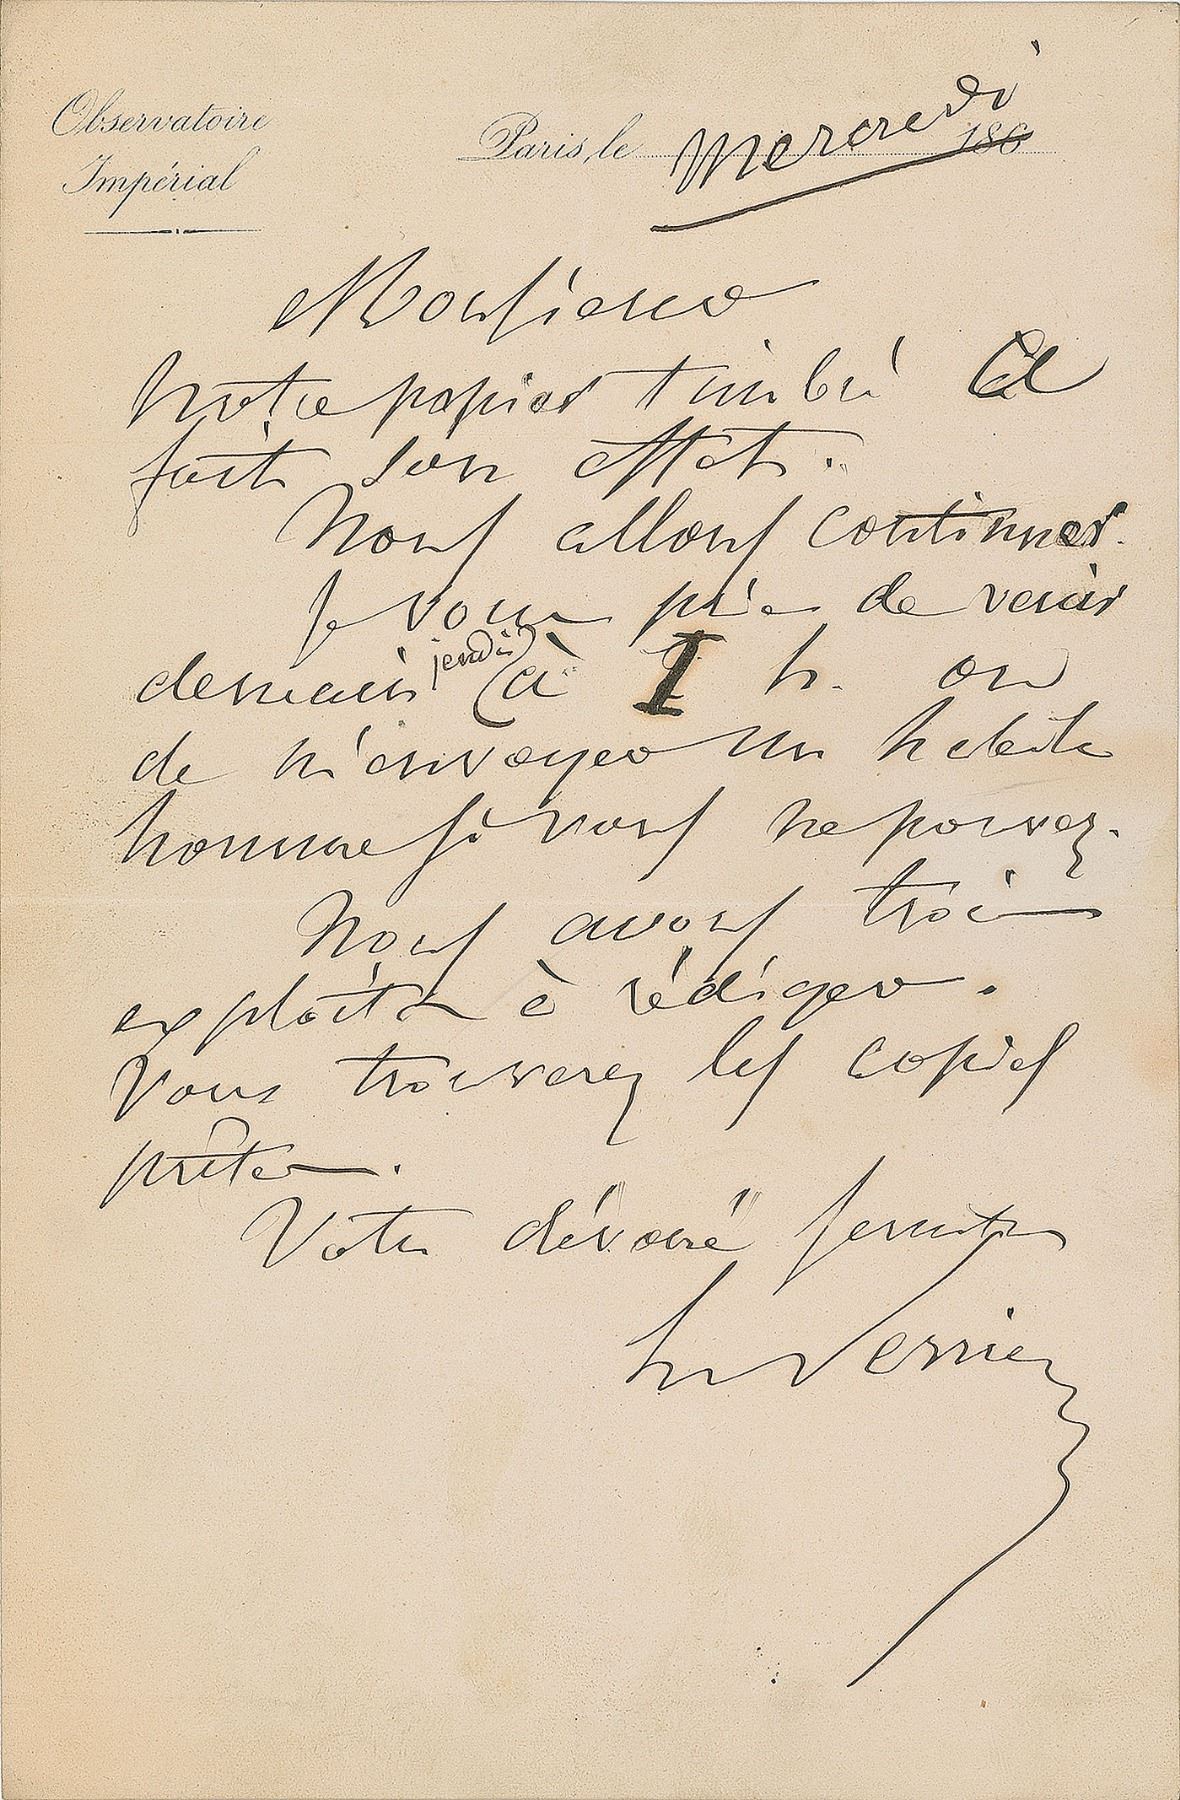 Observatoire
Impérial
Paris, le mercredi 186
Monsieur
Notre papier timbré a
fait son effet.
Nous allons continuer.
Je vous prie de venir
demain jeudi (à 1 h. ou
de m'envoyer un habile
homme si vous ne pouvez.
Nous avons trois
exploits à rédiger.
Vous trouverez les copies
prêtes.
Votre dévoué serviteur
Le Verrier